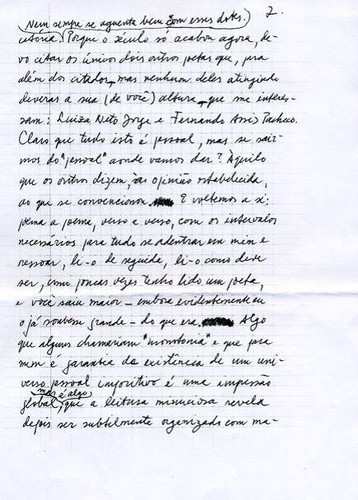 2.
(Nem sempre se aguenta bem com esses dotes.)
citória) Porque o século só acabou agora, de-
vo citar os únicos dois outros poetas que, pra
além dos citados, mas nenhum deles atingindo
deveras a sua (de você) altura, que me interes-
sam: Luiza Neto Jorge e Fernando Assis Pacheco.
Claro que tudo isto é pessoal, mas se sair-
mos do "pessoal" aonde vamos dar? Àquilo
que os outros dizem, à opinião estabelecida,
ao que se convencionou. E voltemos a si:
poema a poema, verso a verso, com os intervalos
necessários para tudo se adentrar em mim e
ressoar, li-o de seguida, li-o como deve
ser, como poucas vezes tenho lido um poeta,
e você saiu maior – embora evidentemente eu
o já soubesse grande – do que era. Algo
que alguns chamariam "monotonia" e que pra
mim é garantia da existência de um uni-
verso pessoal imperativo é uma impressão
global, mas é algo que a leitura minuciosa revela
depois ser subtilmente organizado com ma-